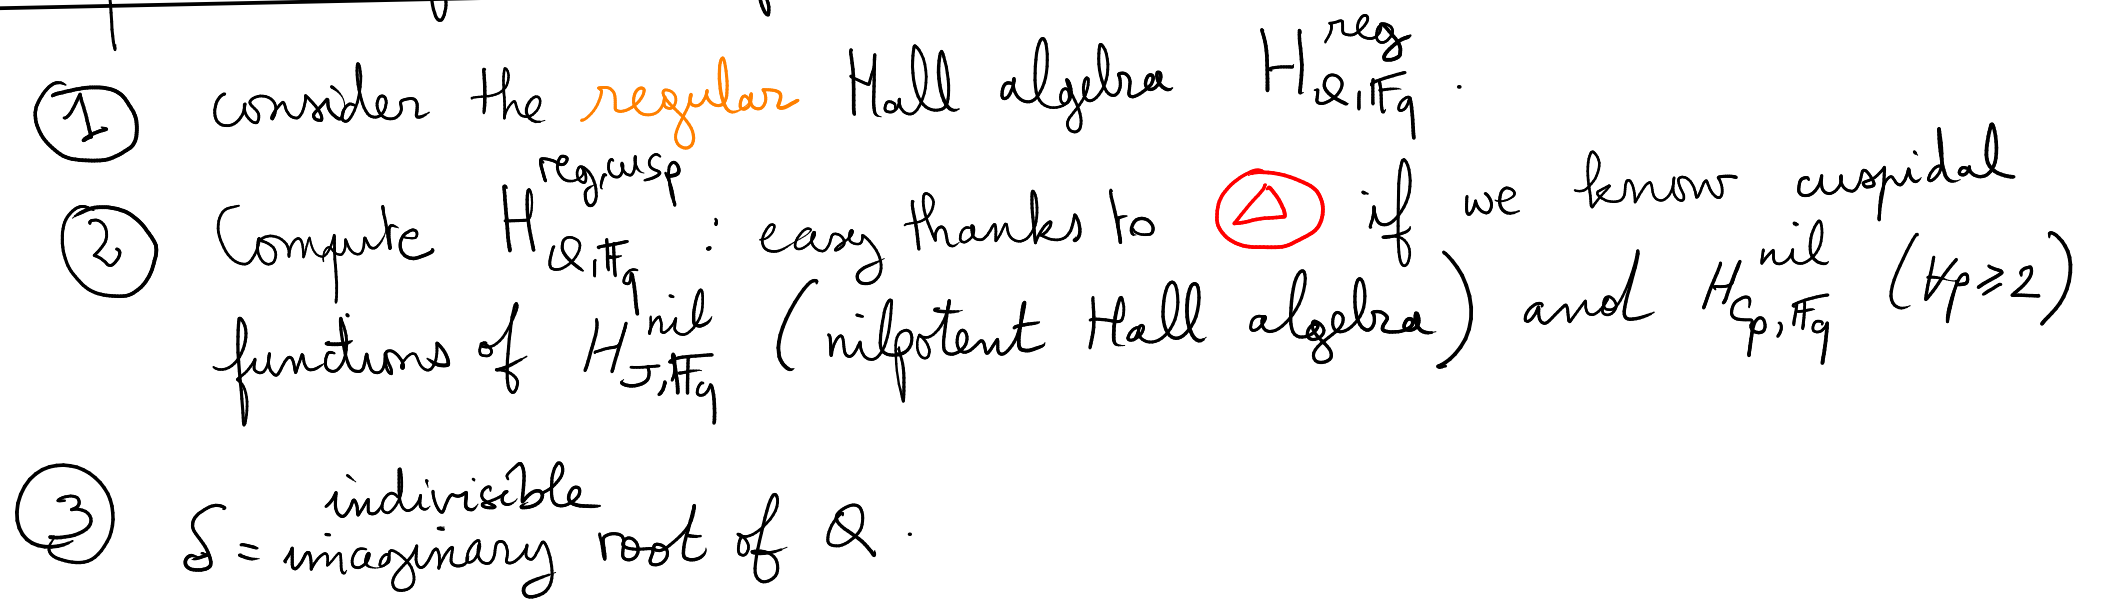 ① consider the regular Hall algebra H^{reg}_{Q,𝔽_q}.
② Compute H^{reg,cusp}_{Q,𝔽_q} : easy thanks to △ if we know cuspidal
functions of H^{nil}_{J,𝔽_q} (nilpotent Hall algebra) and H^{nil}_{C_p,𝔽_q} (∀p⩾2)
③ δ = indivisible imaginary root of Q.